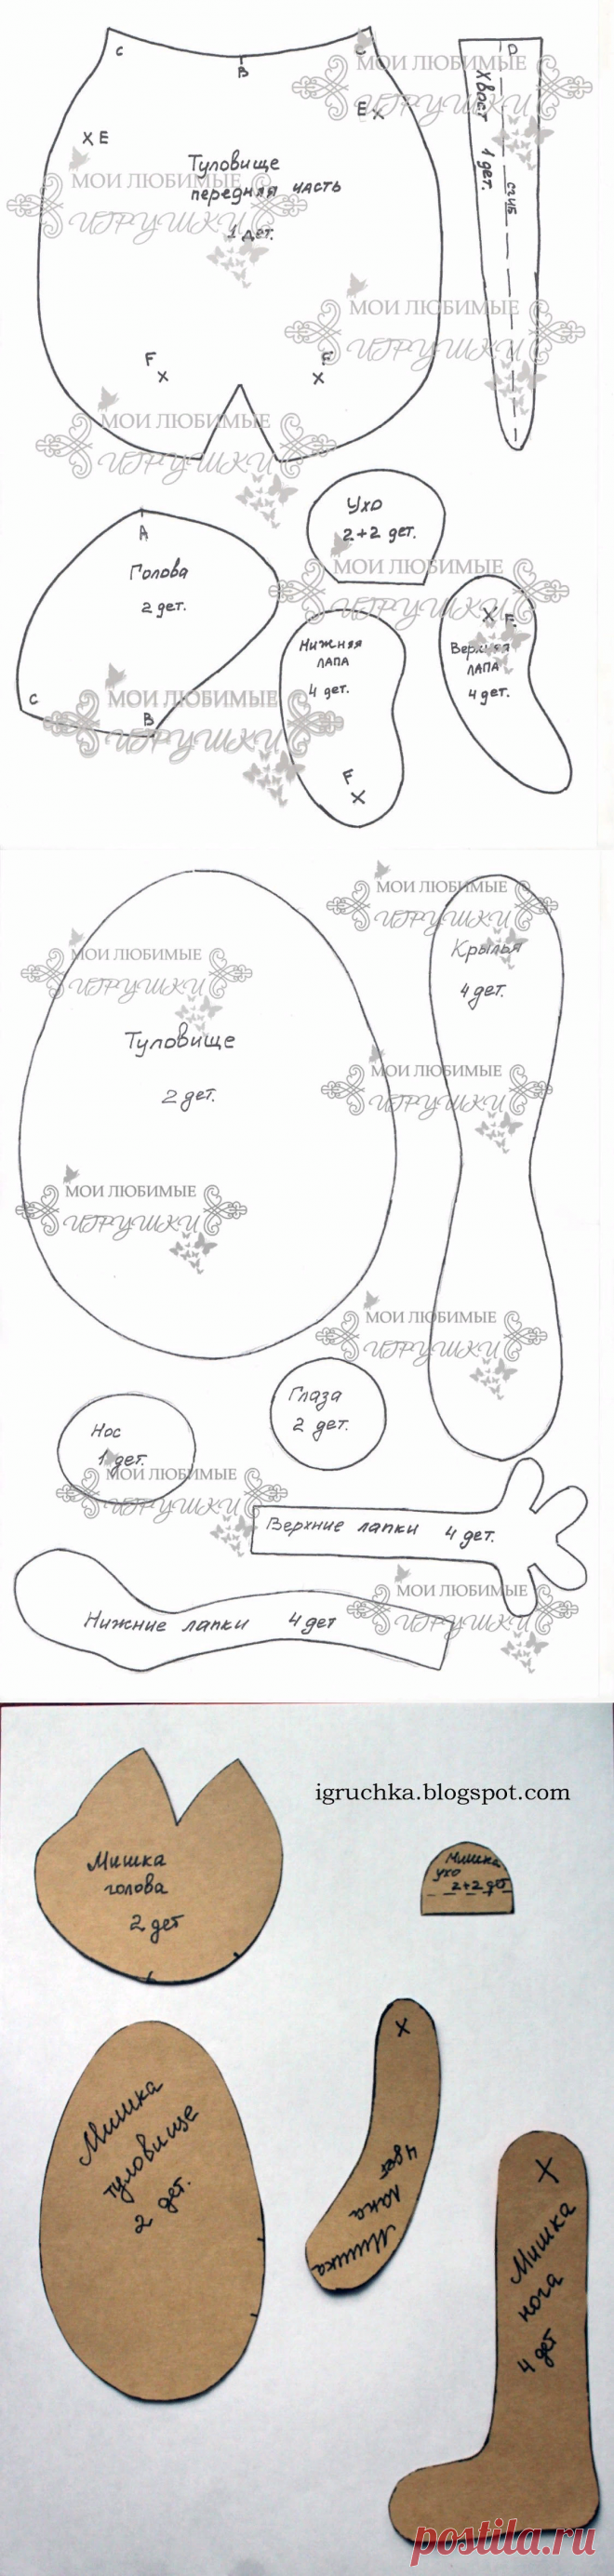 C
B
C
D
Хвост 1 дет.
сгиб
E
E
Туловище
передняя часть
1 дет.
F
F
МОИ ЛЮБИМЫЕ
ИГРУШКИ
МОИ ЛЮБИМЫЕ
ИГРУШКИ
МОИ ЛЮБИМЫЕ
ИГРУШКИ
МОИ ЛЮБИМЫЕ
ИГРУШКИ
Ухо
2+2 дет.
A
Голова
2 дет.
C
B
МОИ ЛЮБИМЫЕ
ИГРУШКИ
Нижняя
лапа
4 дет.
F
F
Верхняя
лапа
4 дет.
МОИ ЛЮБИМЫЕ
ИГРУШКИ
МОИ ЛЮБИМЫЕ
ИГРУШКИ
Крылья
4 дет.
МОИ ЛЮБИМЫЕ
ИГРУШКИ
Туловище
2 дет.
МОИ ЛЮБИМЫЕ
ИГРУШКИ
МОИ ЛЮБИМЫЕ
ИГРУШКИ
МОИ ЛЮБИМЫЕ
ИГРУШКИ
Глаза
2 дет.
Нос
1 дет.
МОИ ЛЮБИМЫЕ
ИГРУШКИ
Верхние лапки 4 дет.
МОИ ЛЮБИМЫЕ
ИГРУШКИ
Нижние лапки 4 дет
igruchka.blogspot.com
Мишка
голова
2 дет
Мишка
ухо
2+2 дет
Мишка
туловище
2 дет.
Мишка
лапа
4 дет
Мишка
нога
4 дет
postila.ru